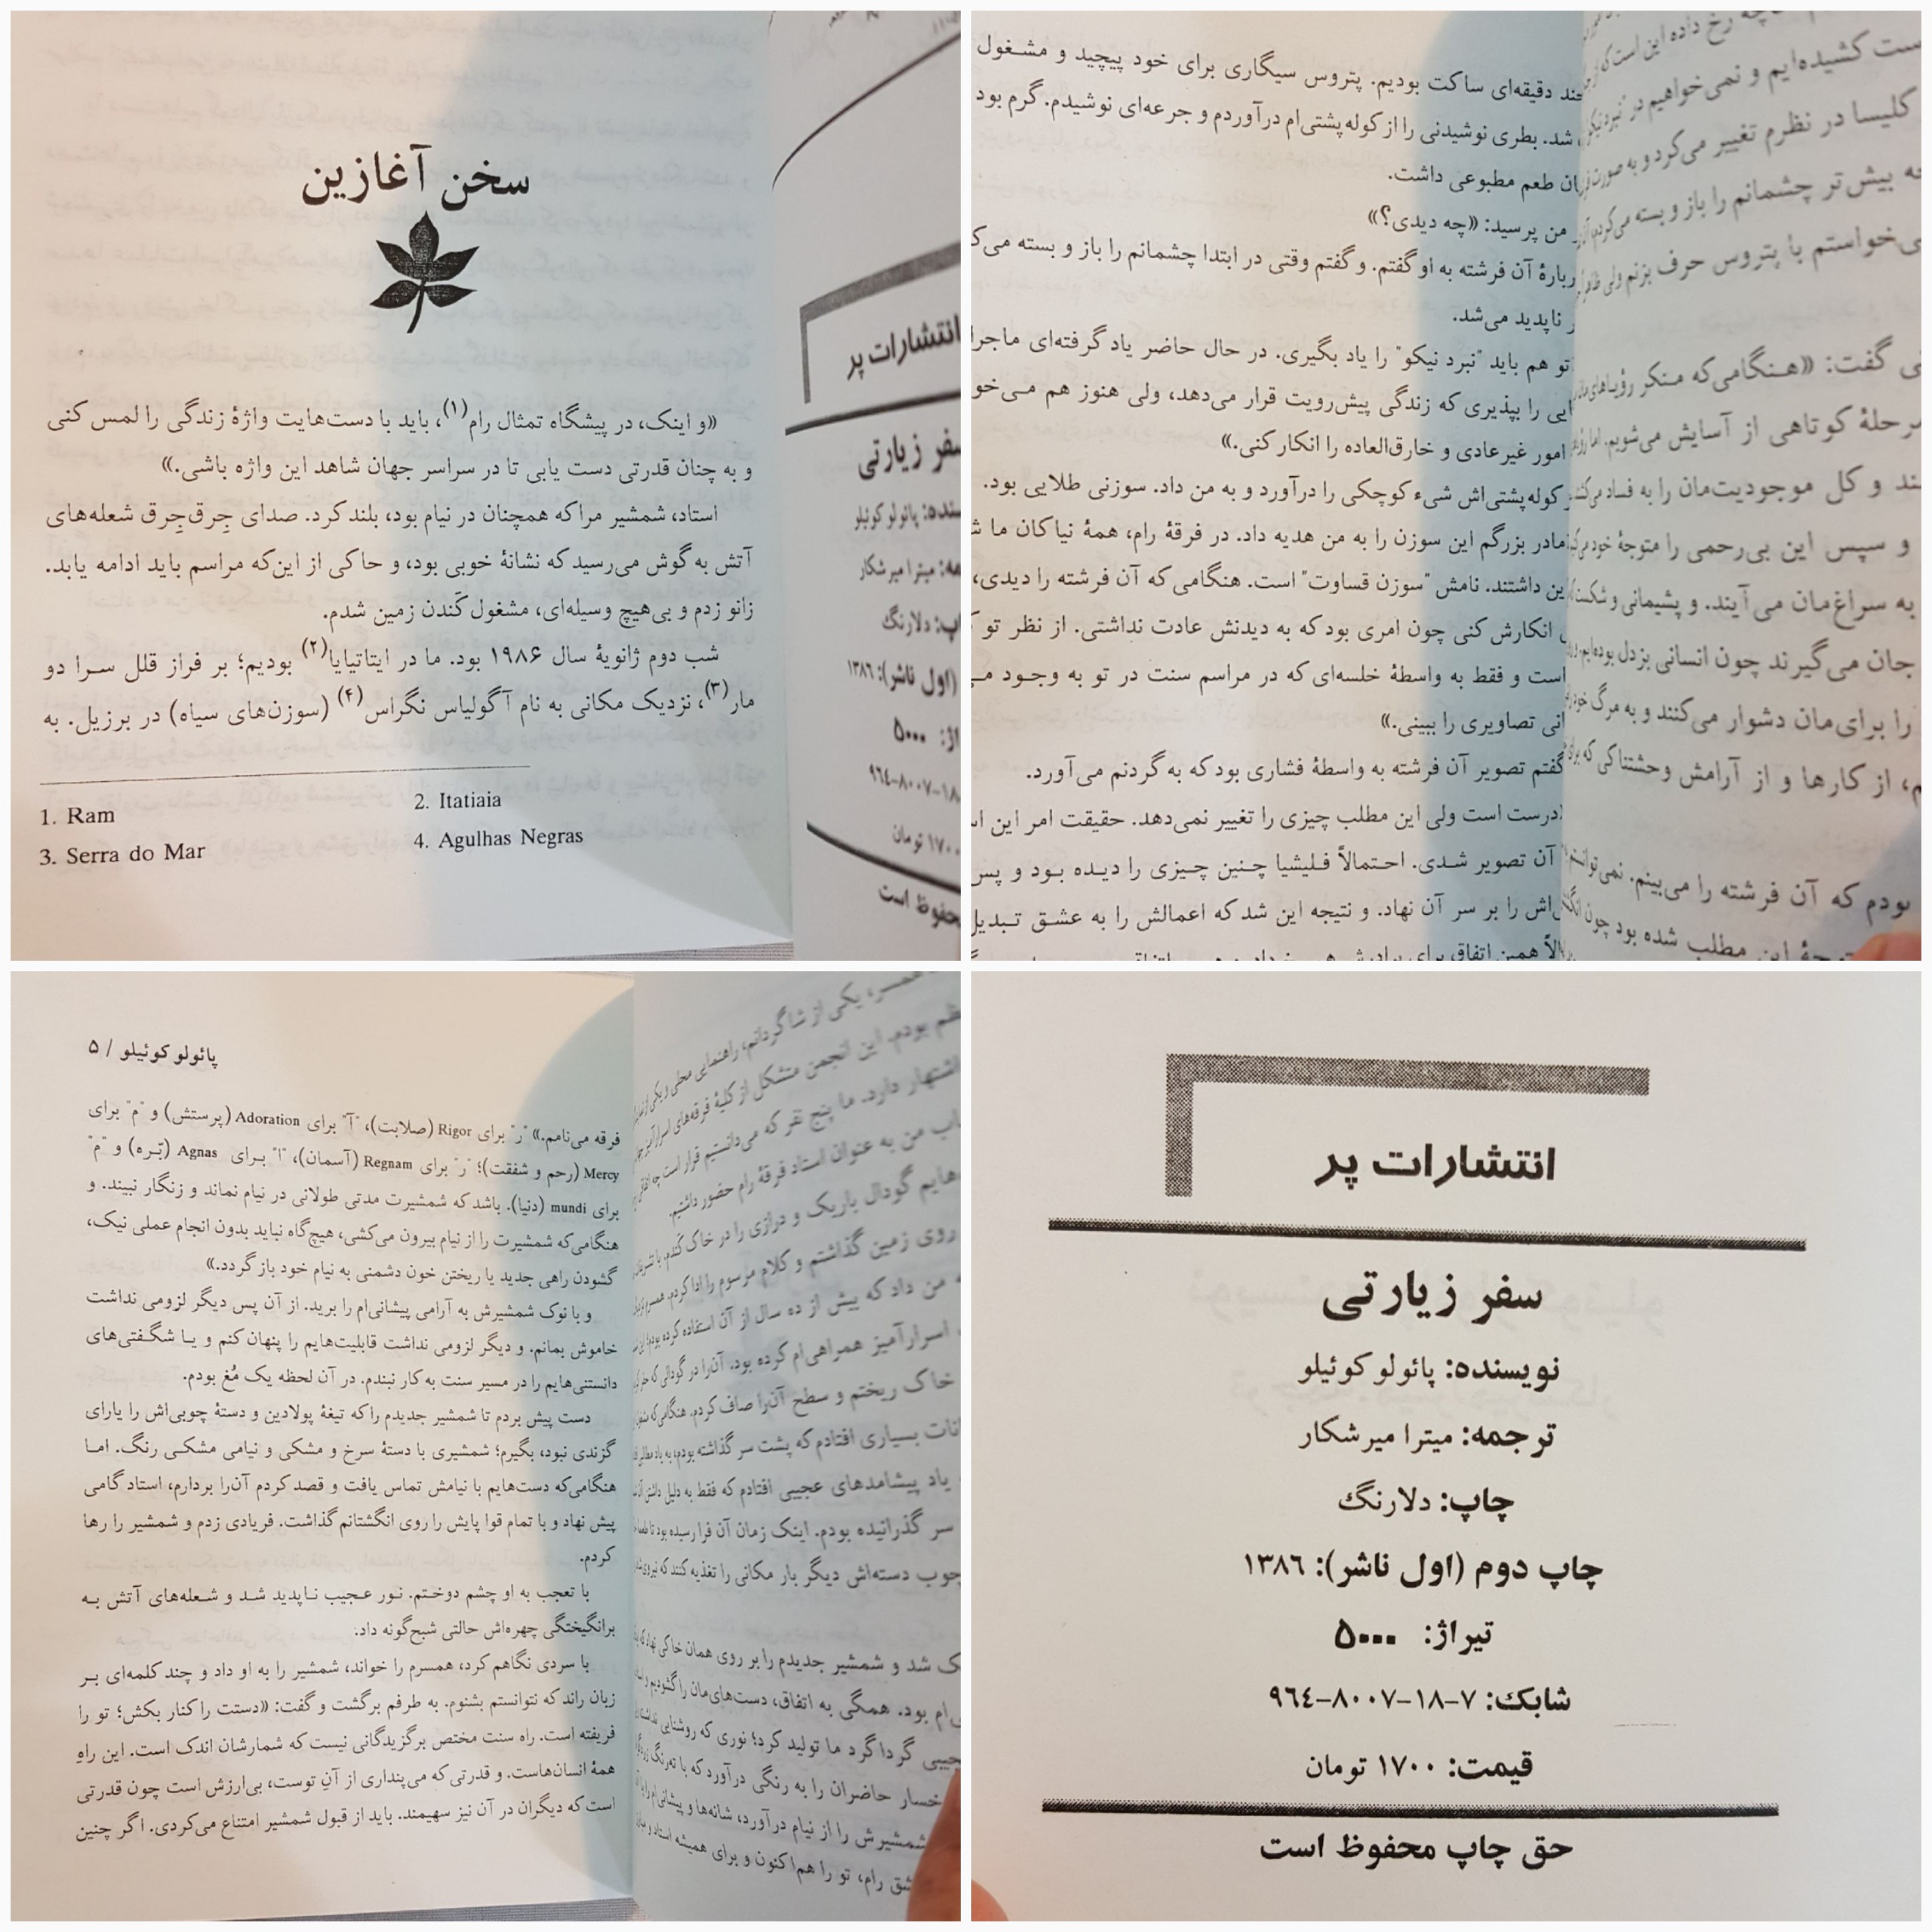 سخن آغازین
«و اینک، در پیشگاه تمثال رام(۱)، باید با دست‌هایت واژهٔ زندگی را لمس کنی
و به چنان قدرتی دست یابی تا در سراسر جهان شاهد این واژه باشی.»
استاد، شمشیر مرا که همچنان در نیام بود، بلند کرد. صدای جِرق‌جِرق شعله‌های
آتش به گوش می‌رسید که نشانهٔ خوبی بود، و حاکی از این‌که مراسم باید ادامه یابد.
زانو زدم و بی‌هیچ وسیله‌ای، مشغول کَندن زمین شدم.
شب دوم ژانویهٔ سال ۱۹۸۶ بود. ما در ایتاتیایا(۲) بودیم؛ بر فراز قلل سرا دو
مار(۳)، نزدیک مکانی به نام آگولیاس نگراس(۴) (سوزن‌های سیاه) در برزیل. به
1. Ram
2. Itatiaia
3. Serra do Mar
4. Agulhas Negras
انتشارات پر
سفر زیارتی
پائولو کوئیلو
میترا میرشکار
دلارنگ
(اول ناشر): ۱۳۸۶
۵۰۰۰
۹۶۴-۸۰۰۷-۱۸
۱۷۰۰ تومان
محفوظ است
دقیقه‌ای ساکت بودیم. پتروس سیگاری برای خود پیچید و مشغول
شد. بطری نوشیدنی را از کوله‌پشتی‌ام درآوردم و جرعه‌ای نوشیدم. گرم بود
طعم مطبوعی داشت.
من پرسید: «چه دیدی؟»
آن فرشته به او گفتم. و گفتم وقتی در ابتدا چشمانم را باز و بسته
ناپدید می‌شد.
تو هم باید "نبرد نیکو" را یاد بگیری. در حال حاضر یاد گرفته‌ای
را بپذیری که زندگی پیش‌رویت قرار می‌دهد، ولی هنوز هم
امور غیرعادی و خارق‌العاده را انکار کنی.»
کوله‌پشتی‌اش شیء کوچکی را درآورد و به من داد. سوزنی طلایی بود.
مادر بزرگم این سوزن را به من هدیه داد. در فرقهٔ رام، همهٔ نیاکان ما
داشتند. نامش "سوزن قساوت" است. هنگامی که آن فرشته را دیدی،
انکارش کنی چون امری بود که به دیدنش عادت نداشتی. از نظر تو
است و فقط به واسطهٔ خلسه‌ای که در مراسم سنت در تو به وجود
تصاویری را ببینی.»
گفتم تصویر آن فرشته به واسطهٔ فشاری بود که به گردنم می‌آورد.
درست است ولی این مطلب چیزی را تغییر نمی‌دهد. حقیقت امر این
آن تصویر شدی. احتمالاً فلیشیا چنین چیزی را دیده بود و پس
را بر سر آن نهاد. و نتیجه این شد که اعمالش را به عشق تبدیل
رخ داده این است که
کشیده‌ایم و نمی‌خواهیم در
کلیسا در نظرم تغییر می‌کرد و به صورت
بیش‌تر چشمانم را باز و بسته می‌کردم،
خواستم با پتروس حرف بزنم ولی
گفت: «هنگامی‌که منکر رؤیاهای
کوتاهی از آسایش می‌شویم. اما
و کل موجودیت‌مان را به فساد
و سپس این بی‌رحمی را متوجهٔ خود
به سراغ‌مان می‌آیند. و پشیمانی و
جان می‌گیرند چون انسانی بزدل بوده‌ایم،
را برای‌مان دشوار می‌کنند و به مرگ
از کارها و از آرامش وحشتناکی که
بودم که آن فرشته را می‌بینم.
این مطلب شده بود چون
پائولو کوئیلو / ۵
فرقه می‌نامم.» "ر" برای Rigor (صلابت)، "آ" برای Adoration (پرستش) و "م" برای
Mercy (رحم و شفقت)؛ "ر" برای Regnam (آسمان)، "ا" برای Agnas (بّره) و "م"
برای mundi (دنیا). باشد که شمشیرت مدتی طولانی در نیام نماند و زنگار نبیند. و
هنگامی‌که شمشیرت را از نیام بیرون می‌کشی، هیچ‌گاه نباید بدون انجام عملی نیک،
گشودن راهی جدید یا ریختن خون دشمنی به نیام خود باز گردد.»
و با نوک شمشیرش به آرامی پیشانی‌ام را برید. از آن پس دیگر لزومی نداشت
خاموش بمانم. و دیگر لزومی نداشت قابلیت‌هایم را پنهان کنم و یا شگفتی‌های
دانستنی‌هایم را در مسیر سنت به کار نبندم. در آن لحظه یک مُغ بودم.
دست پیش بردم تا شمشیر جدیدم را که تیغهٔ پولادین و دستهٔ چوبی‌اش را یارای
گزندی نبود، بگیرم؛ شمشیری با دستهٔ سرخ و مشکی و نیامی مشکی رنگ. اما
هنگامی‌که دست‌هایم با نیامش تماس یافت و قصد کردم آن‌را بردارم، استاد گامی
پیش نهاد و با تمام قوا پایش را روی انگشتانم گذاشت. فریادی زدم و شمشیر را رها
کردم.
با تعجب به او چشم دوختم. نور عجیب ناپدید شد و شعله‌های آتش به
برانگیختگی چهره‌اش حالتی شبح‌گونه داد.
با سردی نگاهم کرد، همسرم را خواند، شمشیر را به او داد و چند کلمه‌ای بر
زبان راند که نتوانستم بشنوم. به طرفم برگشت و گفت: «دستت را کنار بکش؛ تو را
فریفته است. راه سنت مختص برگزیدگانی نیست که شمارشان اندک است. این راهِ
همهٔ انسان‌هاست. و قدرتی که می‌پنداری از آنِ توست، بی‌ارزش است چون قدرتی
است که دیگران در آن نیز سهیمند. باید از قبول شمشیر امتناع می‌کردی. اگر چنین
یکی از شاگردانم، راهنمایی محلی و یکی از
بودم. این انجمن متشکل از کلیهٔ فرقه‌های
اشتهار دارد. ما پنج نفر که می‌دانستیم قرار است چه
من به عنوان استاد فرقهٔ رام حضور داشتیم.
گودال باریک و درازی را در خاک کندم.
روی زمین گذاشتم و کلام مرسوم را ادا کردم.
من داد که بیش از ده سال از آن استفاده کرده بودم؛
اسرارآمیز همراهی‌ام کرده بود. آن‌را در گودالی که
خاک ریختم و سطح آن‌را صاف کردم.
بسیاری افتادم که پشت سر گذاشته بودم،
یاد پیشامدهای عجیبی افتادم که فقط به دلیل داشتن
سر گذرانیده بودم. اینک زمان آن فرا رسیده بود تا
چوب دسته‌اش دیگر بار مکانی را تغذیه کنند که
شد و شمشیر جدیدم را بر روی همان خاکی نهاد که
بود. همگی به اتفاق، دست‌های‌مان را گشودیم و
گرداگرد ما تولید کرد؛ نوری که روشنایی
حاضران را به رنگی درآورد که با
شمشیرش را از نیام درآورد، شانه‌ها و پیشانی‌ام را با
رام، تو را هم‌اکنون و برای همیشه استاد و
انتشارات پر
سفر زیارتی
نویسنده: پائولو کوئیلو
ترجمه: میترا میرشکار
چاپ: دلارنگ
چاپ دوم (اول ناشر): ۱۳۸۶
تیراژ: ۵۰۰۰
شابک: ۷-۱۸-۸۰۰۷-۹۶۴
قیمت: ۱۷۰۰ تومان
حق چاپ محفوظ است